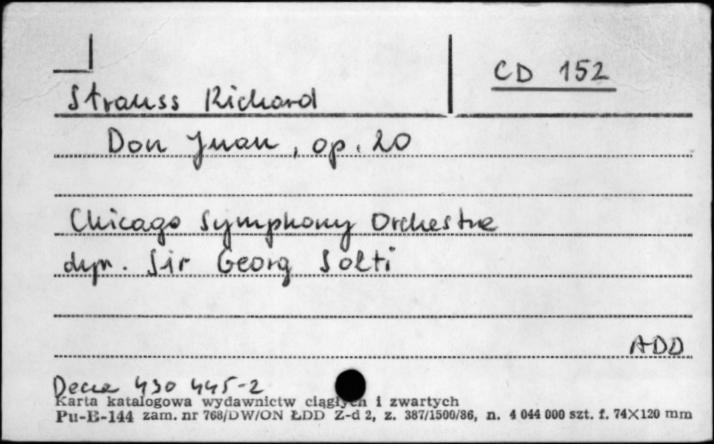 CD 152
Strauss Richard
Don Juan, op. 20
Chicago Symphony Orchestra
dyr. Sir Georg Solti
ADD
Decca 430 445-2
Karta katalogowa wydawnictw ciągłych i zwartych
Pu-B-144 zam. nr 768/DW/ON ŁDD Z-d 2, z. 387/1500/86, n. 4 044 000 szt. f. 74X120 mm